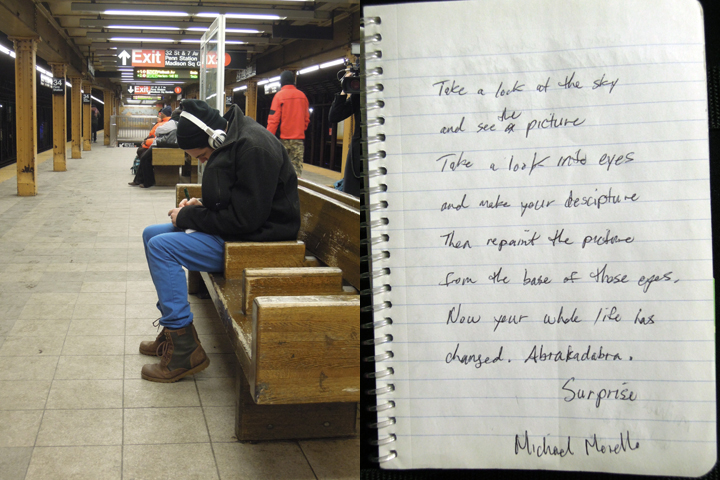 Exit
32 St & 7 Av
Penn Station
Madison Sq G
Exit
34
Take a look at the sky
and see the picture
Take a look into eyes
and make your descipture
Then repaint the picture
from the base of those eyes.
Now your whole life has
changed. Abrakadabra.
Surprise
Michael Morello